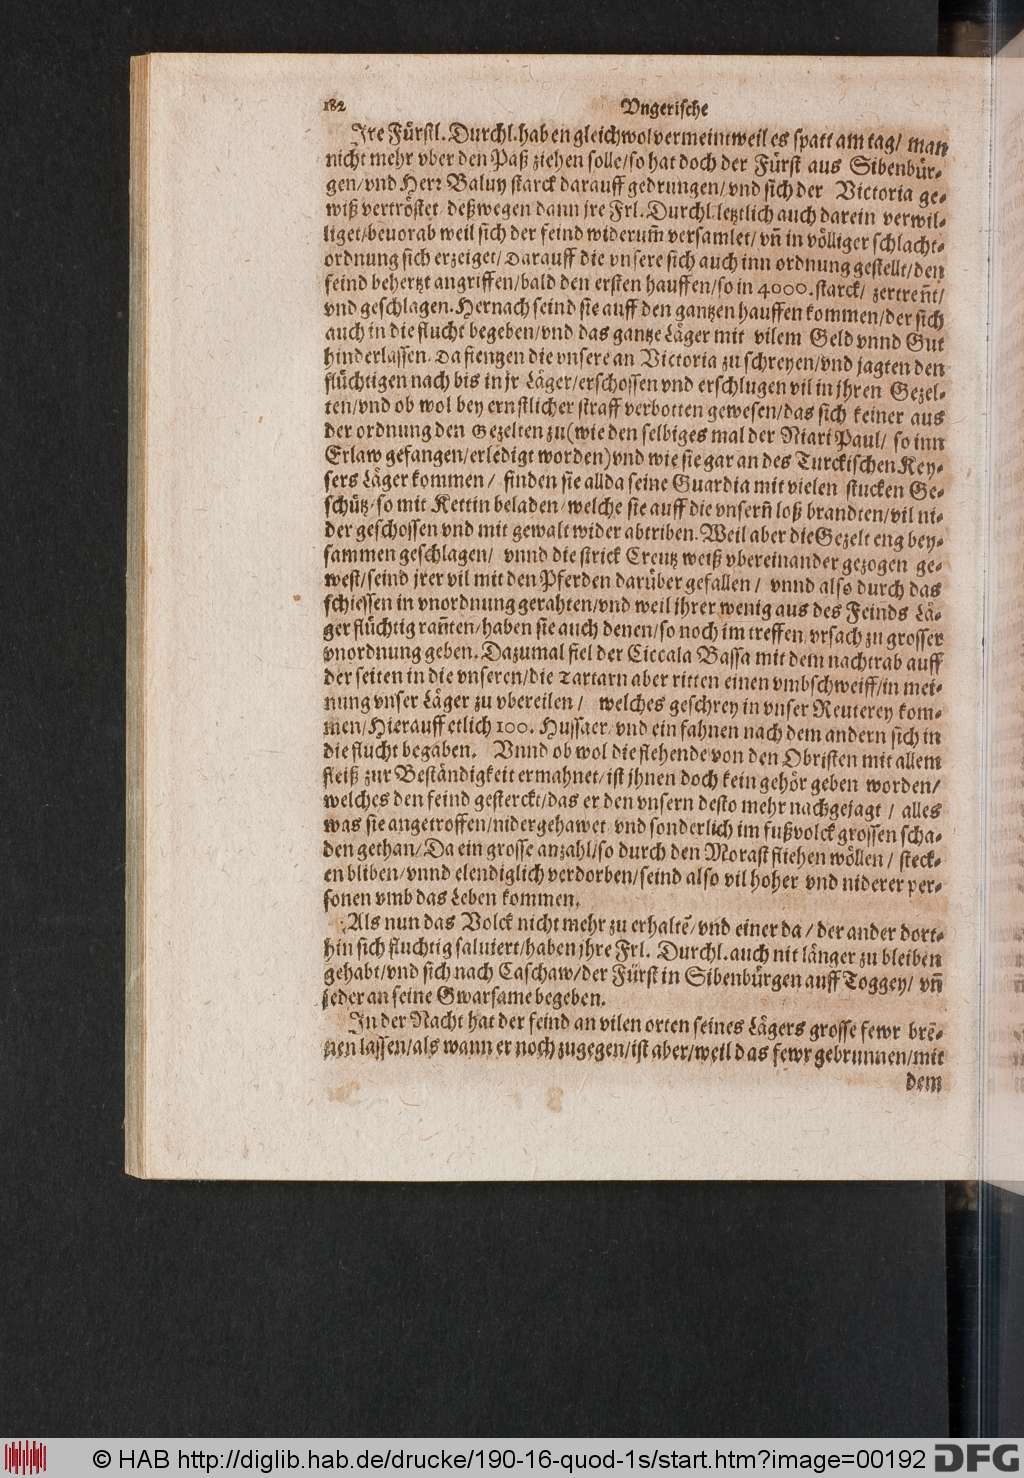 182 Vngerische
Jre Fürstl. Durchl. haben gleichwol vermeint weil es spatt am tag/ man
nicht mehr vber den Paß ziehen solle/so hat doch der Fürst aus Sibenbür-
gen/vnd Herr Baluy starck darauff gedrungen/vnd sich der Victoria ge-
wiß vertröstet/deßwegen dann jre Frl. Durchl. letztlich auch darein verwil-
liget/beuorab weil sich der feind widerum̃ versamlet/ vñ in völliger schlacht-
ordnung sich erzeiget/ Darauff die vnsere sich auch inn ordnung gestellt/den
feind behertzt angriffen/bald den ersten hauffen/so in 4000. starck/ zertreñt/
vnd geschlagen. Hernach seind sie auff den gantzen hauffen kommen/der sich
auch in die flucht begeben/vnd das gantze Läger mit vilem Geld vnnd Gut
hinderlassen. Da fiengen die vnsere an Victoria zu schreyen/vnd jagten den
flüchtigen nach bis in jr Läger/erschossen vnd erschlugen vil in jhren Gezel-
ten/vnd ob wol bey ernstlicher straff verbotten gewesen/das sich keiner aus
der ordnung den Gezelten zu(wie den selbiges mal der Niari Paul/ so inn
Erlaw gefangen/erledigt worden)vnd wie sie gar an des Turckischen Key-
sers Läger kommen/ finden sie allda seine Guardia mit vielen stucken Ge-
schütz/so mit Kettin beladen/welche sie auff die vnserñ loß brandten/vil ni-
der geschossen vnd mit gewalt wider abtriben. Weil aber die Gezelt eng bey-
sammen geschlagen/ vnnd die strick Creutz weiß vbereinander gezogen ge-
west/seind jrer vil mit den Pferden darüber gefallen/ vnnd also durch das
schiessen in vnordnung gerahten/vnd weil ihrer wenig aus des Feinds Lä-
ger flüchtig rañten/haben sie auch denen/so noch im treffen vrsach zu grosser
vnordnung geben. Dazumal fiel der Ciccala Bassa mit dem nachtrab auff
der seiten in die vnseren/die Tartarn aber ritten einen vmbschweiff/in mei-
nung vnser Läger zu vbereilen/ welches geschrey in vnser Reuterey kom-
men/Hierauff etlich 100. Hussaer/vnd ein fahnen nach dem andern sich in
die flucht begaben. Vnnd ob wol die flehende von den Obristen mit allem
fleiß zur Beständigkeit ermahnet/ist jhnen doch kein gehör geben worden/
welches den feind gesterckt/das er den vnsern desto mehr nachgejagt/ alles
was sie angetroffen/nidergehawet/vnd sonderlich im fußvolck grossen scha-
den gethan/Da ein grosse anzahl/so durch den Morast fliehen wöllen/ steck-
en bliben/vnnd elendiglich verdorben/seind also vil hoher vnd niderer per-
sonen vmb das Leben kommen.
Als nun das Volck nicht mehr zu erhaltẽ/vnd einer da/der ander dort-
hin sich fluchtig saluiert/haben jhre Frl. Durchl. auch nit länger zu bleiben
gehabt/vnd sich nach Caschaw/der Fürst in Sibenbürgen auff Toggey/ vñ
jeder an seine Gwarsame begeben.
In der Nacht hat der feind an vilen orten seines Lägers grosse fewr brẽ-
nen lassen/als wann er noch zugegen/ist aber/weil das fewr gebrunnen/mit
dem
© HAB http://diglib.hab.de/drucke/190-16-quod-1s/start.htm?image=00192 DFG